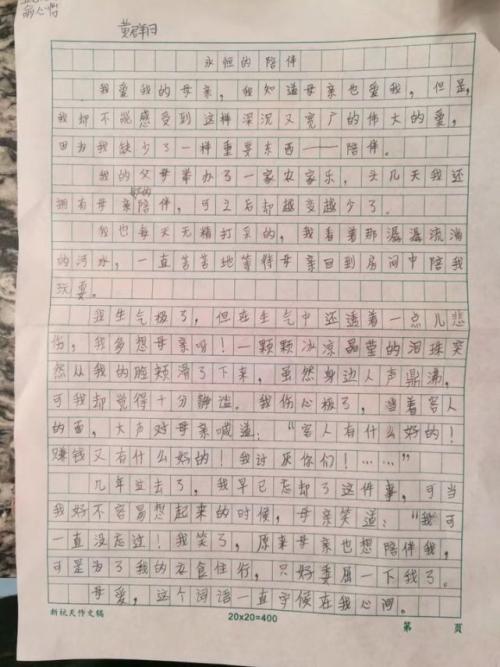 病人情
黄群日
永恒的陪伴
我爱我的母亲，我知道母亲也爱我，但是，
我却不能感受到这样深沉又宽广的伟大的爱，
因为我缺少了一样重要东西——陪伴。
我的父母举办了一家农家乐，头几天我还
拥有母亲的陪伴，可之后却越变越少了。
我也每天无精打采的，我看着那潺潺流淌
的河水，一直苦苦地等待母亲回到房间中陪我
玩耍。
我生气极了，但在生气中还透着一点儿悲
伤，我多想母亲呀！一颗颗冰凉晶莹的泪珠突
然从我的脸颊滑了下来，虽然身边人声鼎沸，
可我却觉得十分静谧。我伤心极了，当着客人
的面，大声对母亲喊道：“客人有什么好的！
赚钱又有什么好的！我讨厌你们！……”
几年过去了，我早已忘却了这件事，可当
我好不容易想起来的时候，母亲笑道：“我可
一直没忘过！我笑了，原来母亲也想陪伴我，
可是为了我的衣食住行，只好委屈一下我了。
母爱，这个词语一直守候在我心间。
新航天作文稿
20×20=400
第 页